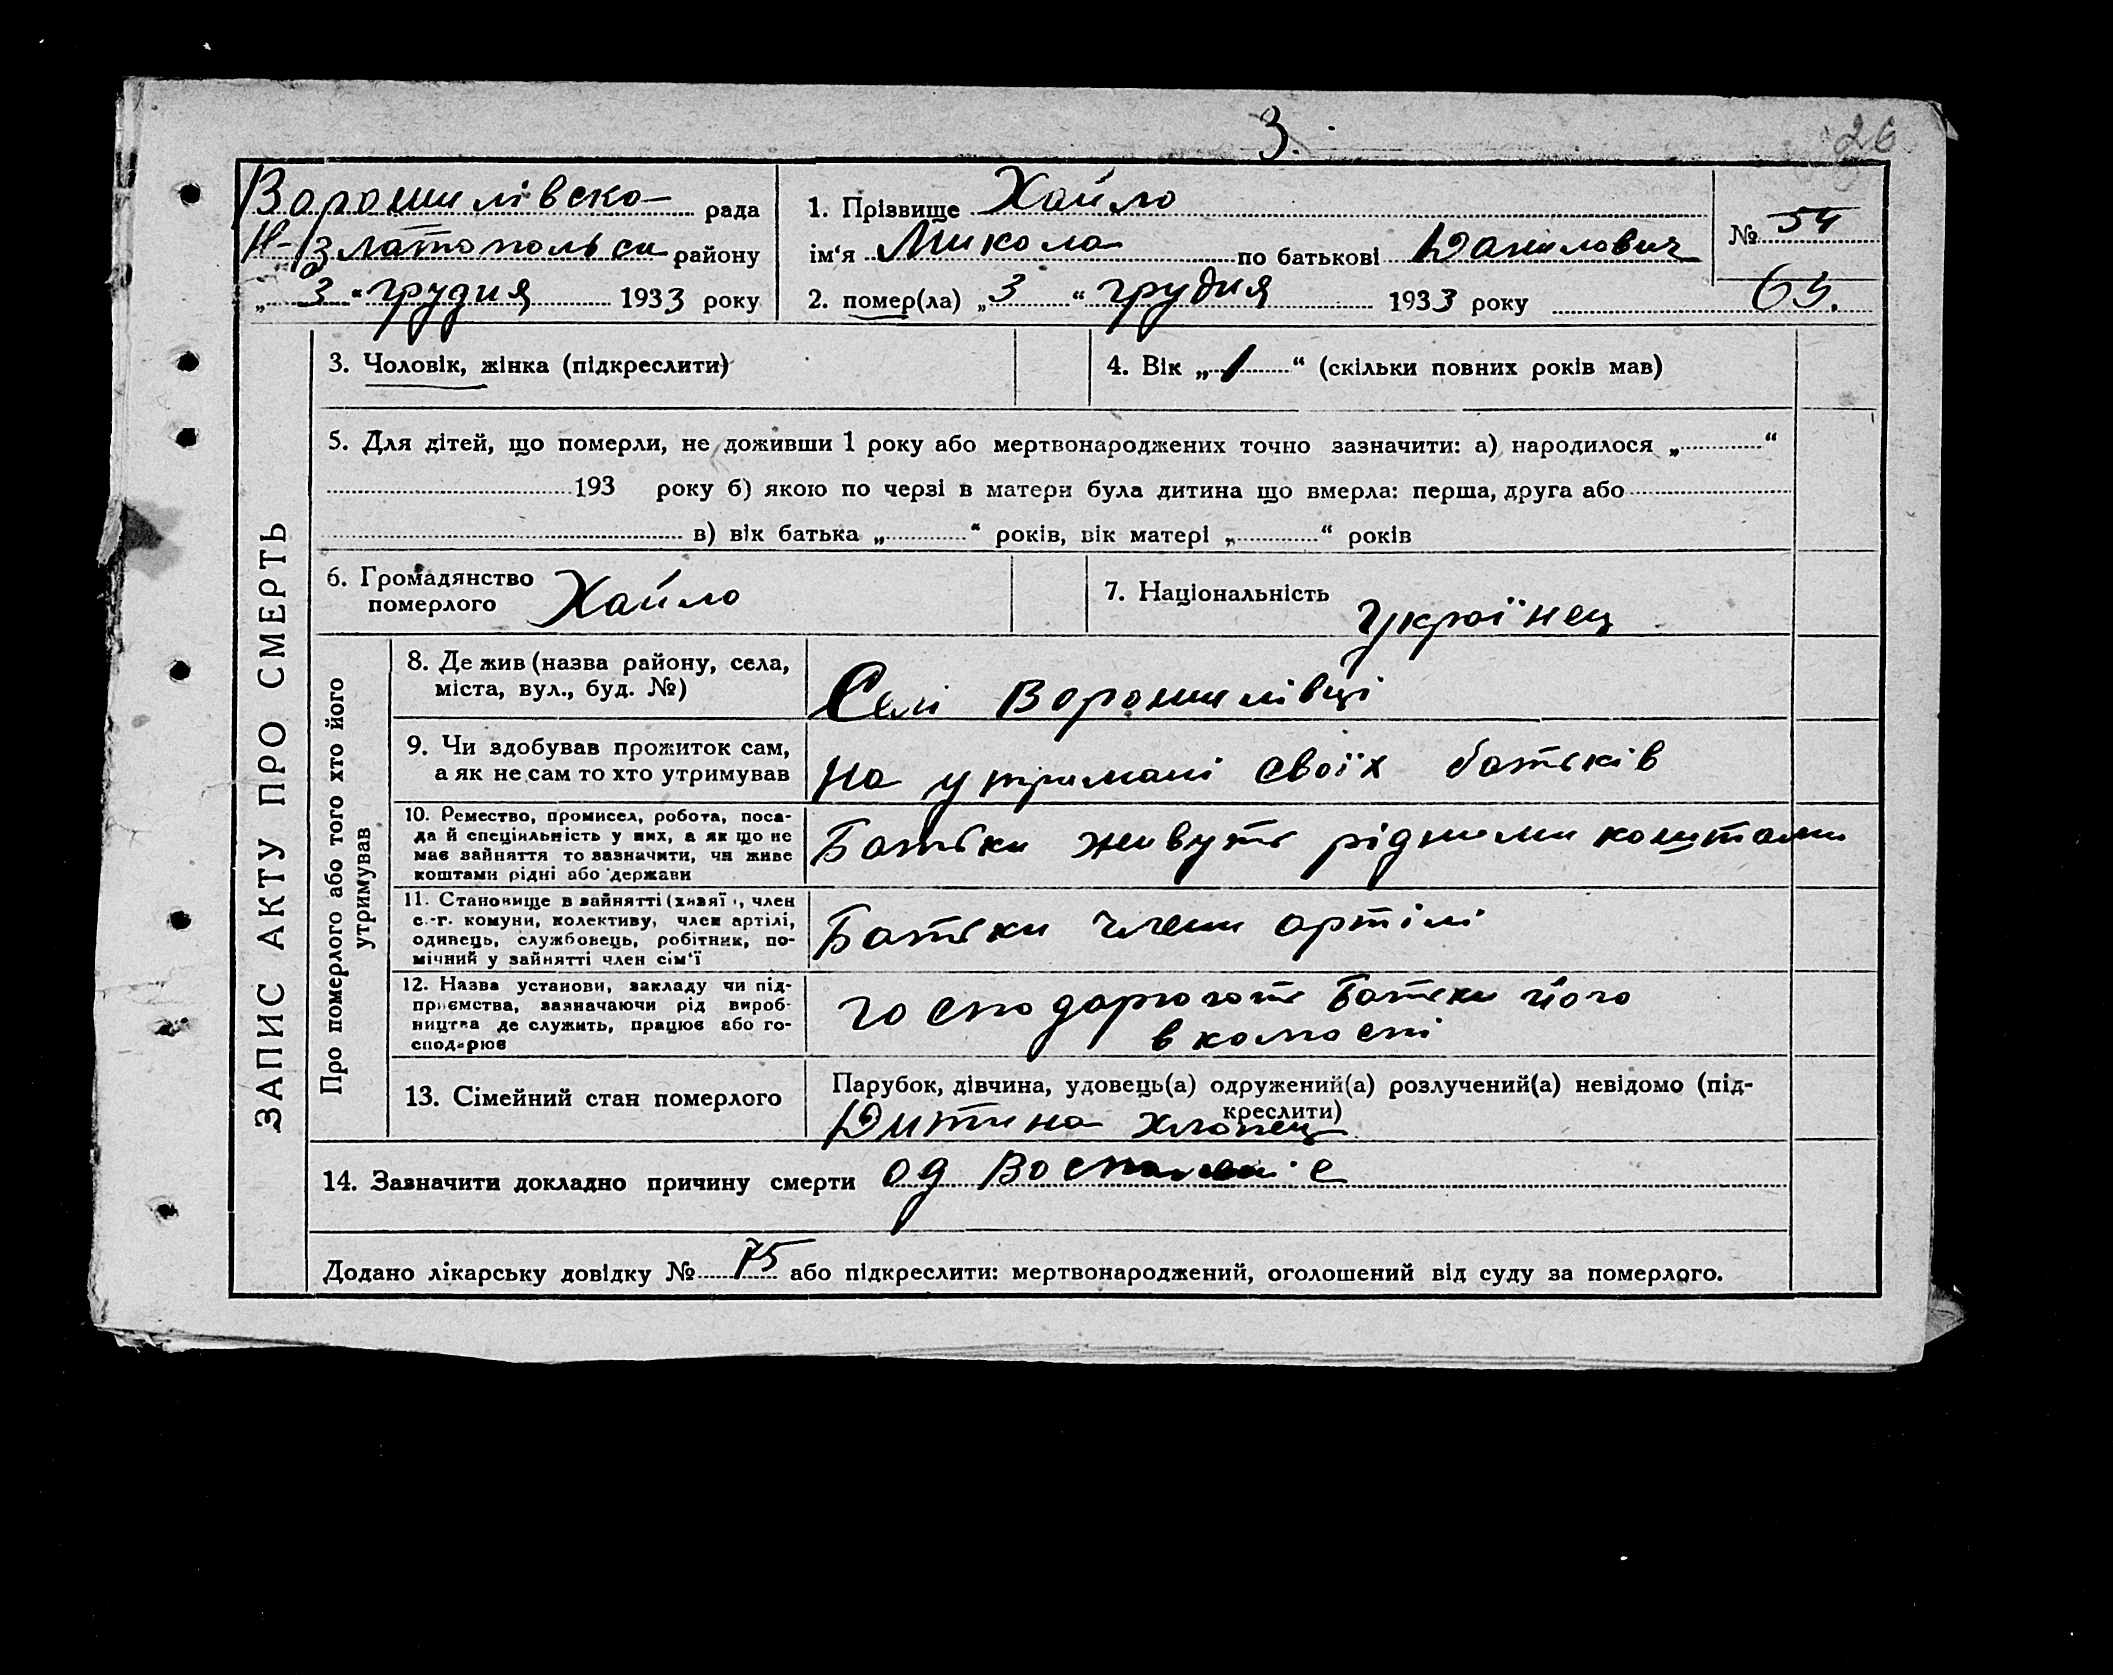 3.
26
Ворошилівска рада
Н-Златопольск району
„3“ грудня 1933 року
1. Прізвище Хайло
ім‘я Микола по батькові Данилович
№ 54
2. помер(ла) „3“ грудня 1933 року
63.
ЗАПИС АКТУ ПРО СМЕРТЬ
3. Чоловік, жінка (підкреслити)
4. Вік „1“ (скільки повних років мав)
5. Для дітей, що померли, не доживши 1 року або мертвонароджених точно зазначити: а) народилося „ “
193 року б) якою по черзі в матери була дитина що вмерла: перша, друга або
в) вік батька „ “ років, вік матері „ “ років
6. Громадянство
померлого Хайло
7. Національність Українец
Про померлого або того хто його
утримував
8. Де жив (назва району, села,
міста, вул., буд. №)
Селі Ворошилівці
9. Чи здобував прожиток сам,
а як не сам то хто утримував
на утримані своїх батьків
10. Ремество, промисел, робота, поса-
да й спеціяльність у них, а як що не
має зайняття то зазначити, чи живе
коштами рідні або держави
Батьки живуть рідними коштами
11. Становище в зайнятті (хазяї, член
с.-г. комуни, колективу, член артілі,
одинець, службовець, робітник, по-
мічний у зайнятті член сім‘ї
Батьки члени артілі
12. Назва установи, закладу чи під-
приємства, зазначаючи рід вироб-
ництва де служить, працює або го-
сподарює
господарюють Батьки його
в
13. Сімейний стан померлого
Парубок, дівчина, удовець(а) одружений(а) розлучений(а) невідомо (під-
креслити)
Дитина хлопец
14. Зазначити докладно причину смерти од
Додано лікарську довідку № 75 або підкреслити: мертвонароджений, оголошений від суду за померлого.